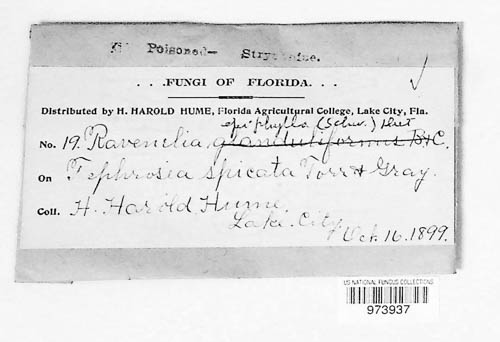 Poisoned- Strychnine.
. . .FUNGI OF FLORIDA. . .
Distributed by H. HAROLD HUME, Florida Agricultural College, Lake City, Fla.
epiphylla (Schw.) Diet
No. 19. Ravenelia glanduliformis B&C.
On Tephrosia spicata Torr & Gray.
Coll. H. Harold Hume
Lake City,
Oct. 16. 1899.
US NATIONAL FUNGUS COLLECTIONS
973937